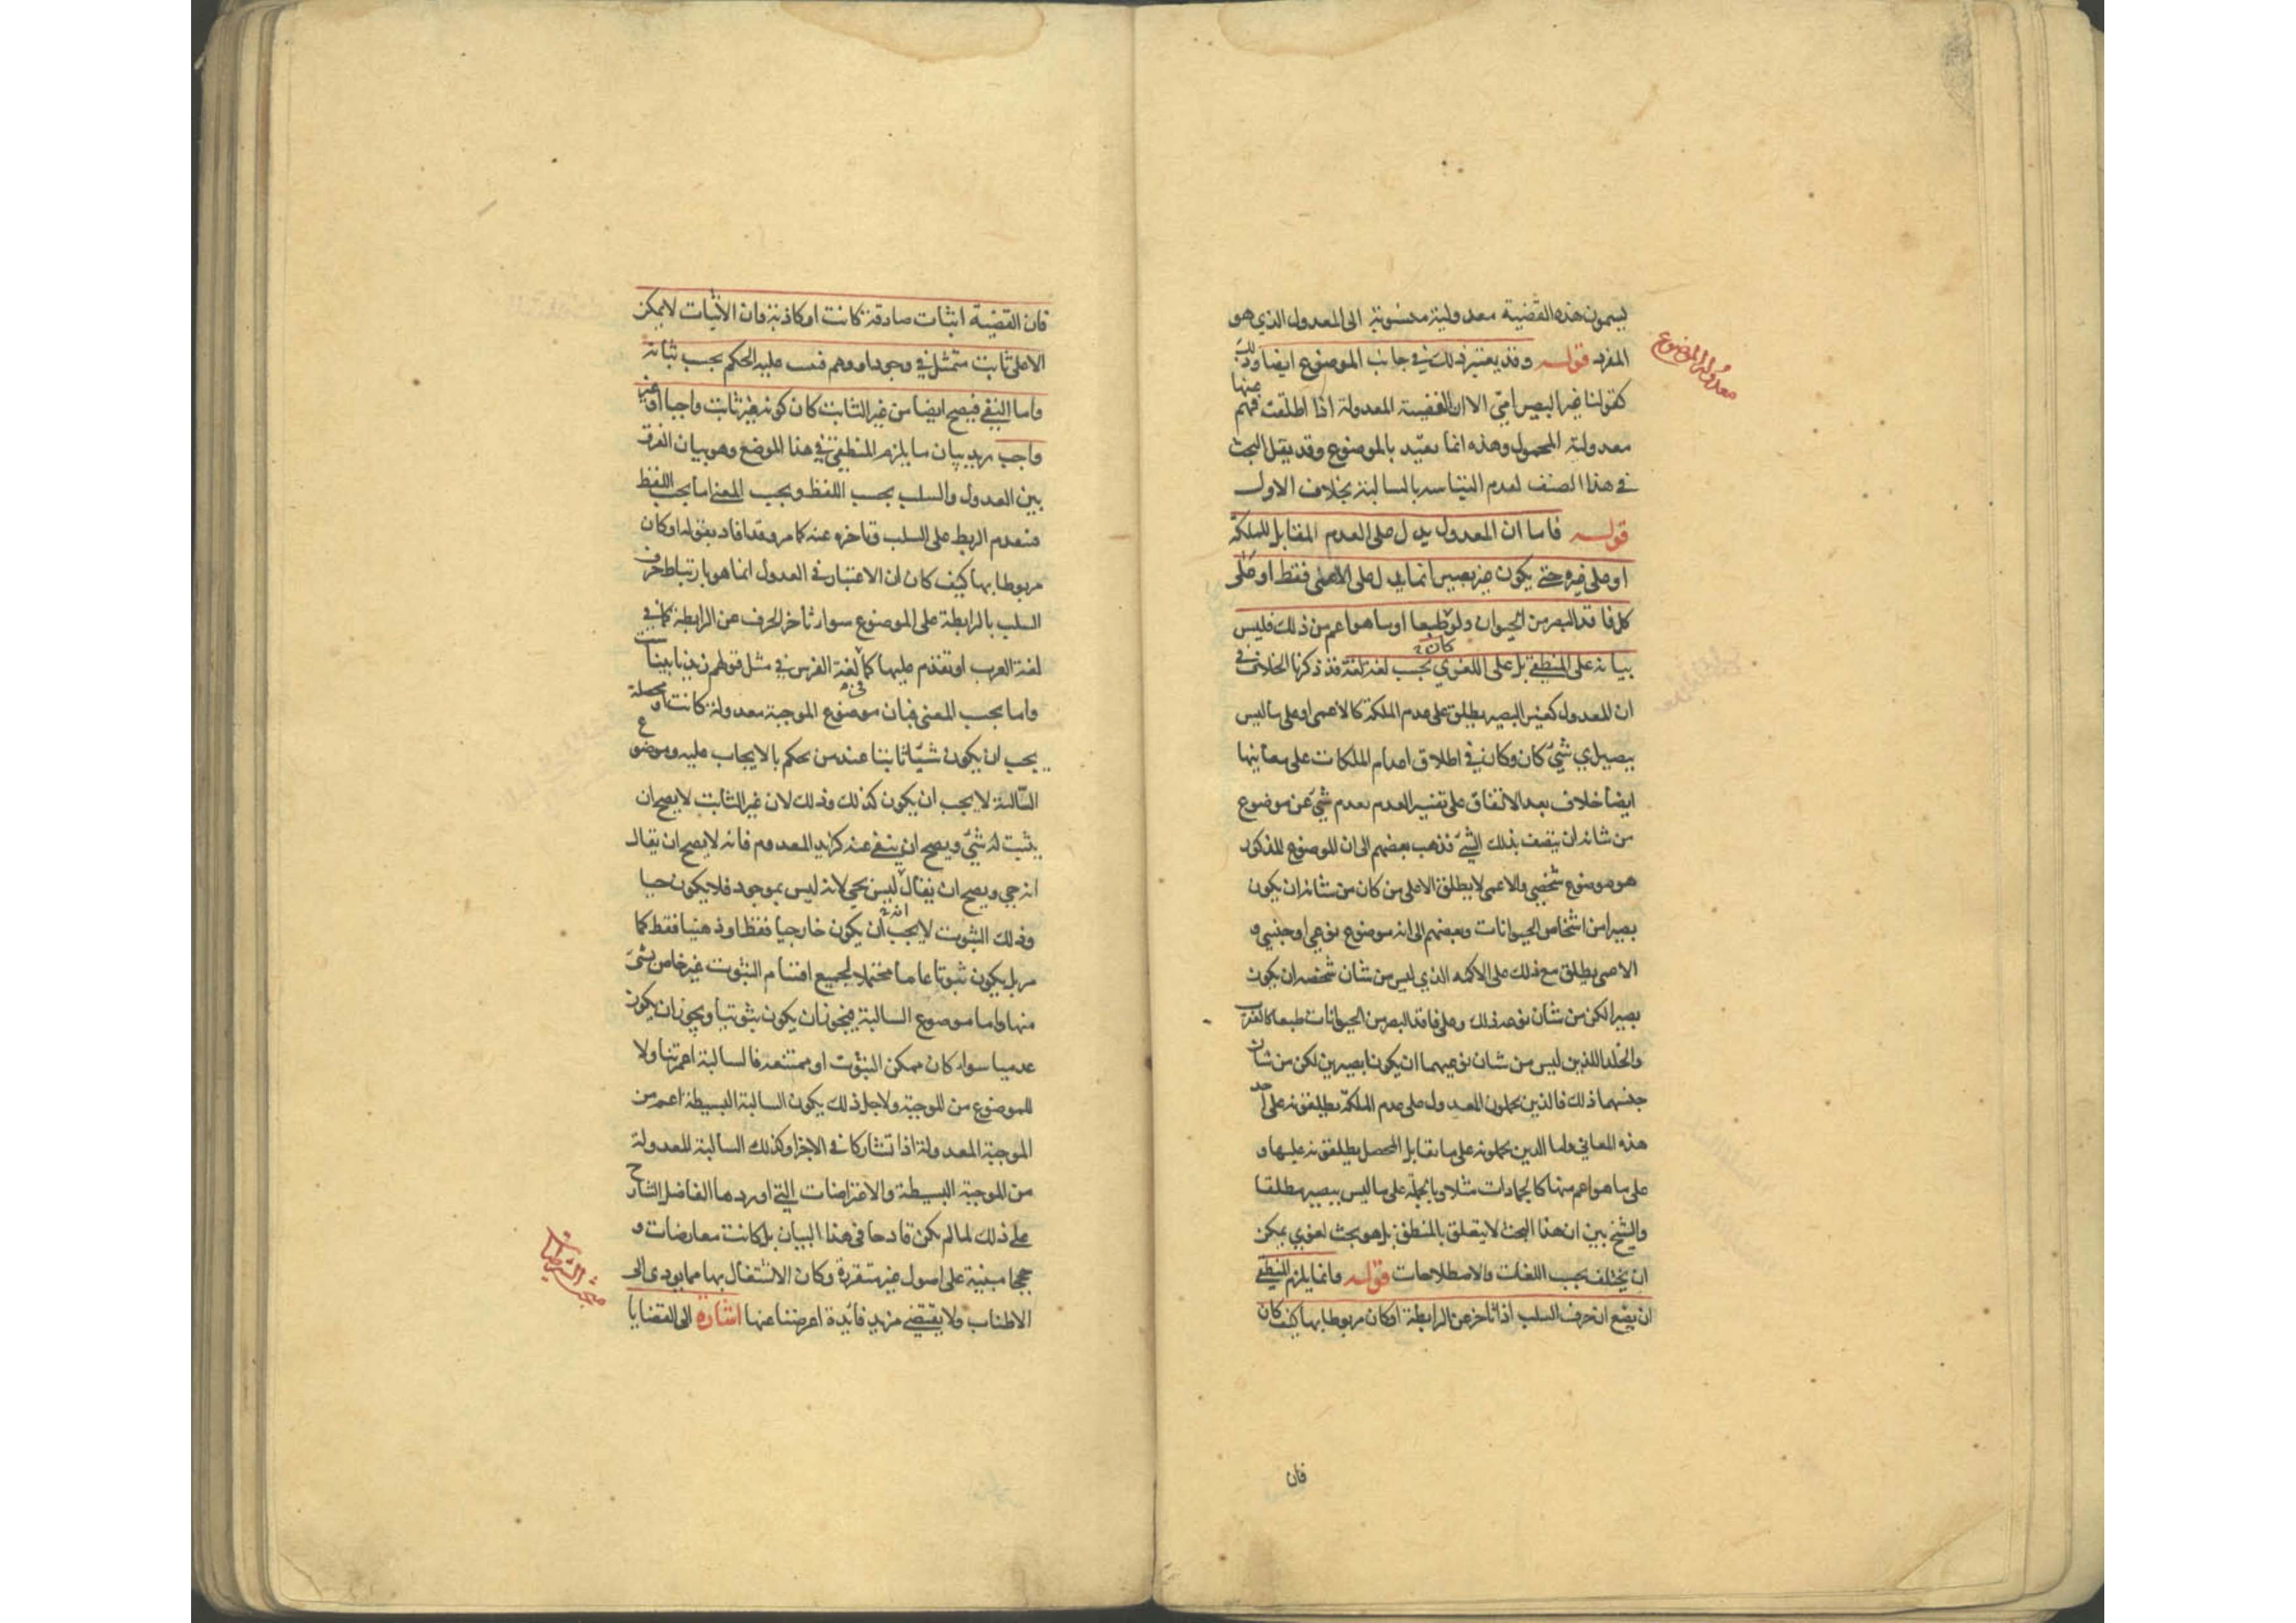 يسمون هذه القضية معدولية منسوبة الى المعدول الذي هو
معدولة الموضوع
المفرد قوله وقد يعتبر ذلك في جانب الموضوع ايضا وذلك
كقولنا غير البصير امي الا ان القضية المعدولة اذا اطلقت فهم منها
معدولية المحمول وهذه انما تقيد بالموضوع وقد يقل البحث
في هذا الصنف لعدم التباسه بالسالبة بخلاف الاول
قوله فاما ان المعدول يدل على العدم المقابل للملكة
او على غيره حتى يكون غير بصير انما يدل على الاعمى فقط او على
كل فاقد البصر من الحيوان ولو كان طبعا او ما هو اعم من ذلك فليس
بيانه على المنطقي بل على اللغوي بحسب لغة لغة قد ذكرنا الخلاف في
ان المعدول كغير البصير يطلق على عدم الملكة كالاعمى او على ما ليس
ببصير اي شيء كان وكان في اطلاق اعدام الملكات على معانيها
ايضا خلاف بعد الاتفاق على تفسير العدم بعدم شيء عن موضوع
من شانه ان يتصف بذلك الشيء فذهب بعضهم الى ان الموضوع المذكور
هو موضوع شخصي والاعمى لا يطلق الا على من كان من شانه ان يكون
بصيرا من اشخاص الحيوانات وبعضهم الى انه موضوع نوعي او جنسي و
الاعمى يطلق مع ذلك على الاكمه الذي ليس من شان شخصه ان يكون
بصيرا لكن من شان نوعه ذلك وعلى فاقد البصر من الحيوانات طبعا كالعقرب
والخلد اللذين ليس من شان نوعيهما ان يكونا بصيرين لكن من شان
جنسهما ذلك فالذين يحملون المعدول على عدم الملكة يطلقونه على احد
هذه المعاني واما الذين يحملونه على ما يقابل المحصل يطلقونه عليها و
على ما هو اعم منها كالجمادات مثلا وبالجملة على ما ليس ببصير مطلقا
والشيخ بين ان هذا البحث لا يتعلق بالمنطق بل هو بحث لغوي يمكن
ان يختلف بحسب اللغات والاصطلاحات قوله وانما يلزم المنطقي
ان يضع ان حرف السلب اذا تاخر عن الرابطة او كان مربوطا بها كيف كان
فان
فان القضية اثبات صادقة كانت او كاذبة فان الاثبات لا يمكن
الا على ثابت متمثل في وجود او وهم فيثبت عليه الحكم بحسب ثباته
واما النفي فيصح ايضا من غير الثابت كان كونه غير ثابت واجبا او غير
واجب يريد بيان ما يلزم المنطقي في هذا الموضع وهو بيان الفرق
بين العدول والسلب بحسب اللفظ وبحسب المعنى اما بحسب اللفظ
فتقدم الربط على السلب وتاخره عنه كما مر وقد افاد بقوله او كان
مربوطا بها كيف كان ان الاعتبار في العدول انما هو بارتباط حرف
السلب بالرابطة على الموضوع سواء تاخر الحرف عن الرابطة كما في
لغة العرب او تقدم عليها كما في لغة الفرس في مثل قولهم زيد نابيناست
واما بحسب المعنى فبان موضوع الموجبة معدولة كانت او محصلة
يجب ان يكون شيئا ثابتا عند من يحكم بالايجاب عليه وموضوع
السالبة لا يجب ان يكون كذلك وذلك لان غير الثابت لا يصح ان
يثبت له شيء ويصح ان ينفى عنه كزيد المعدوم فانه لا يصح ان يقال
انه حي ويصح ان يقال انه ليس بحي لانه ليس بموجود فلا يكون حيا
وذلك الثبوت لا يجب ان يكون خارجيا فقط او ذهنيا فقط كما
مر بل يكون ثبوتا عاما محتملا لجميع اقسام الثبوت غير خاص بشيء
منها واما موضوع السالبة فيجوز ان يكون ثبوتيا ويجوز ان يكون
عدميا سواء كان ممكن الثبوت او ممتنعه فالسالبة اعم تناولا
للموضوع من الموجبة ولاجل ذلك يكون السالبة البسيطة اعم من
الموجبة المعدولة اذا تشاركا في الاجزا وكذلك السالبة المعدولة
من الموجبة البسيطة والاعتراضات التي اوردها الفاضل الشارح
على ذلك لما لم يكن قادحا في هذا البيان بل كانت معارضات و
حججا مبنية على اصول غير متقررة وكان الاشتغال بها مما يودى الى
الاطناب ولا يقتضي مزيد فائدة اعرضنا عنها اشارة الى القضايا